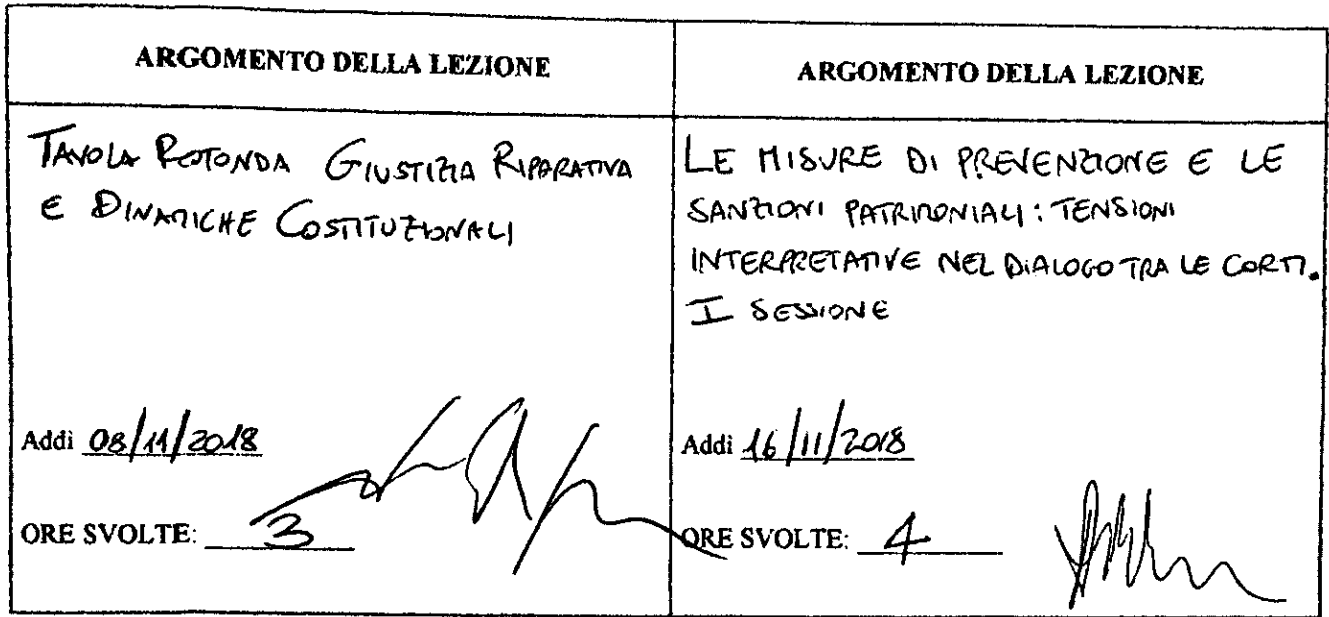 ARGOMENTO DELLA LEZIONE
TAVOLA ROTONDA GIUSTIZIA RIPARATIVA
E DINAMICHE COSTITUZIONALI
Addì 08/11/2018
ORE SVOLTE: 3
ARGOMENTO DELLA LEZIONE
LE MISURE DI PREVENZIONE E LE
SANZIONI PATRIMONIALI: TENSIONI
INTERPRETATIVE NEL DIALOGO TRA LE CORTI.
I SESSIONE
Addì 16/11/2018
ORE SVOLTE: 4